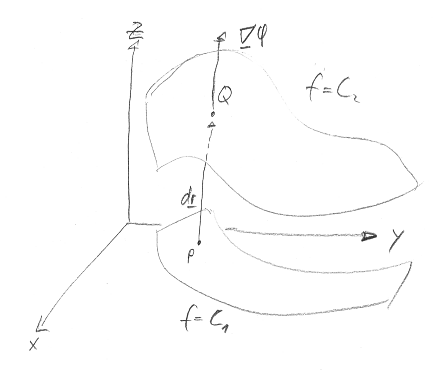 Z
∇φ
Q
f=C₂
dr
Y
P
f=C₁
X